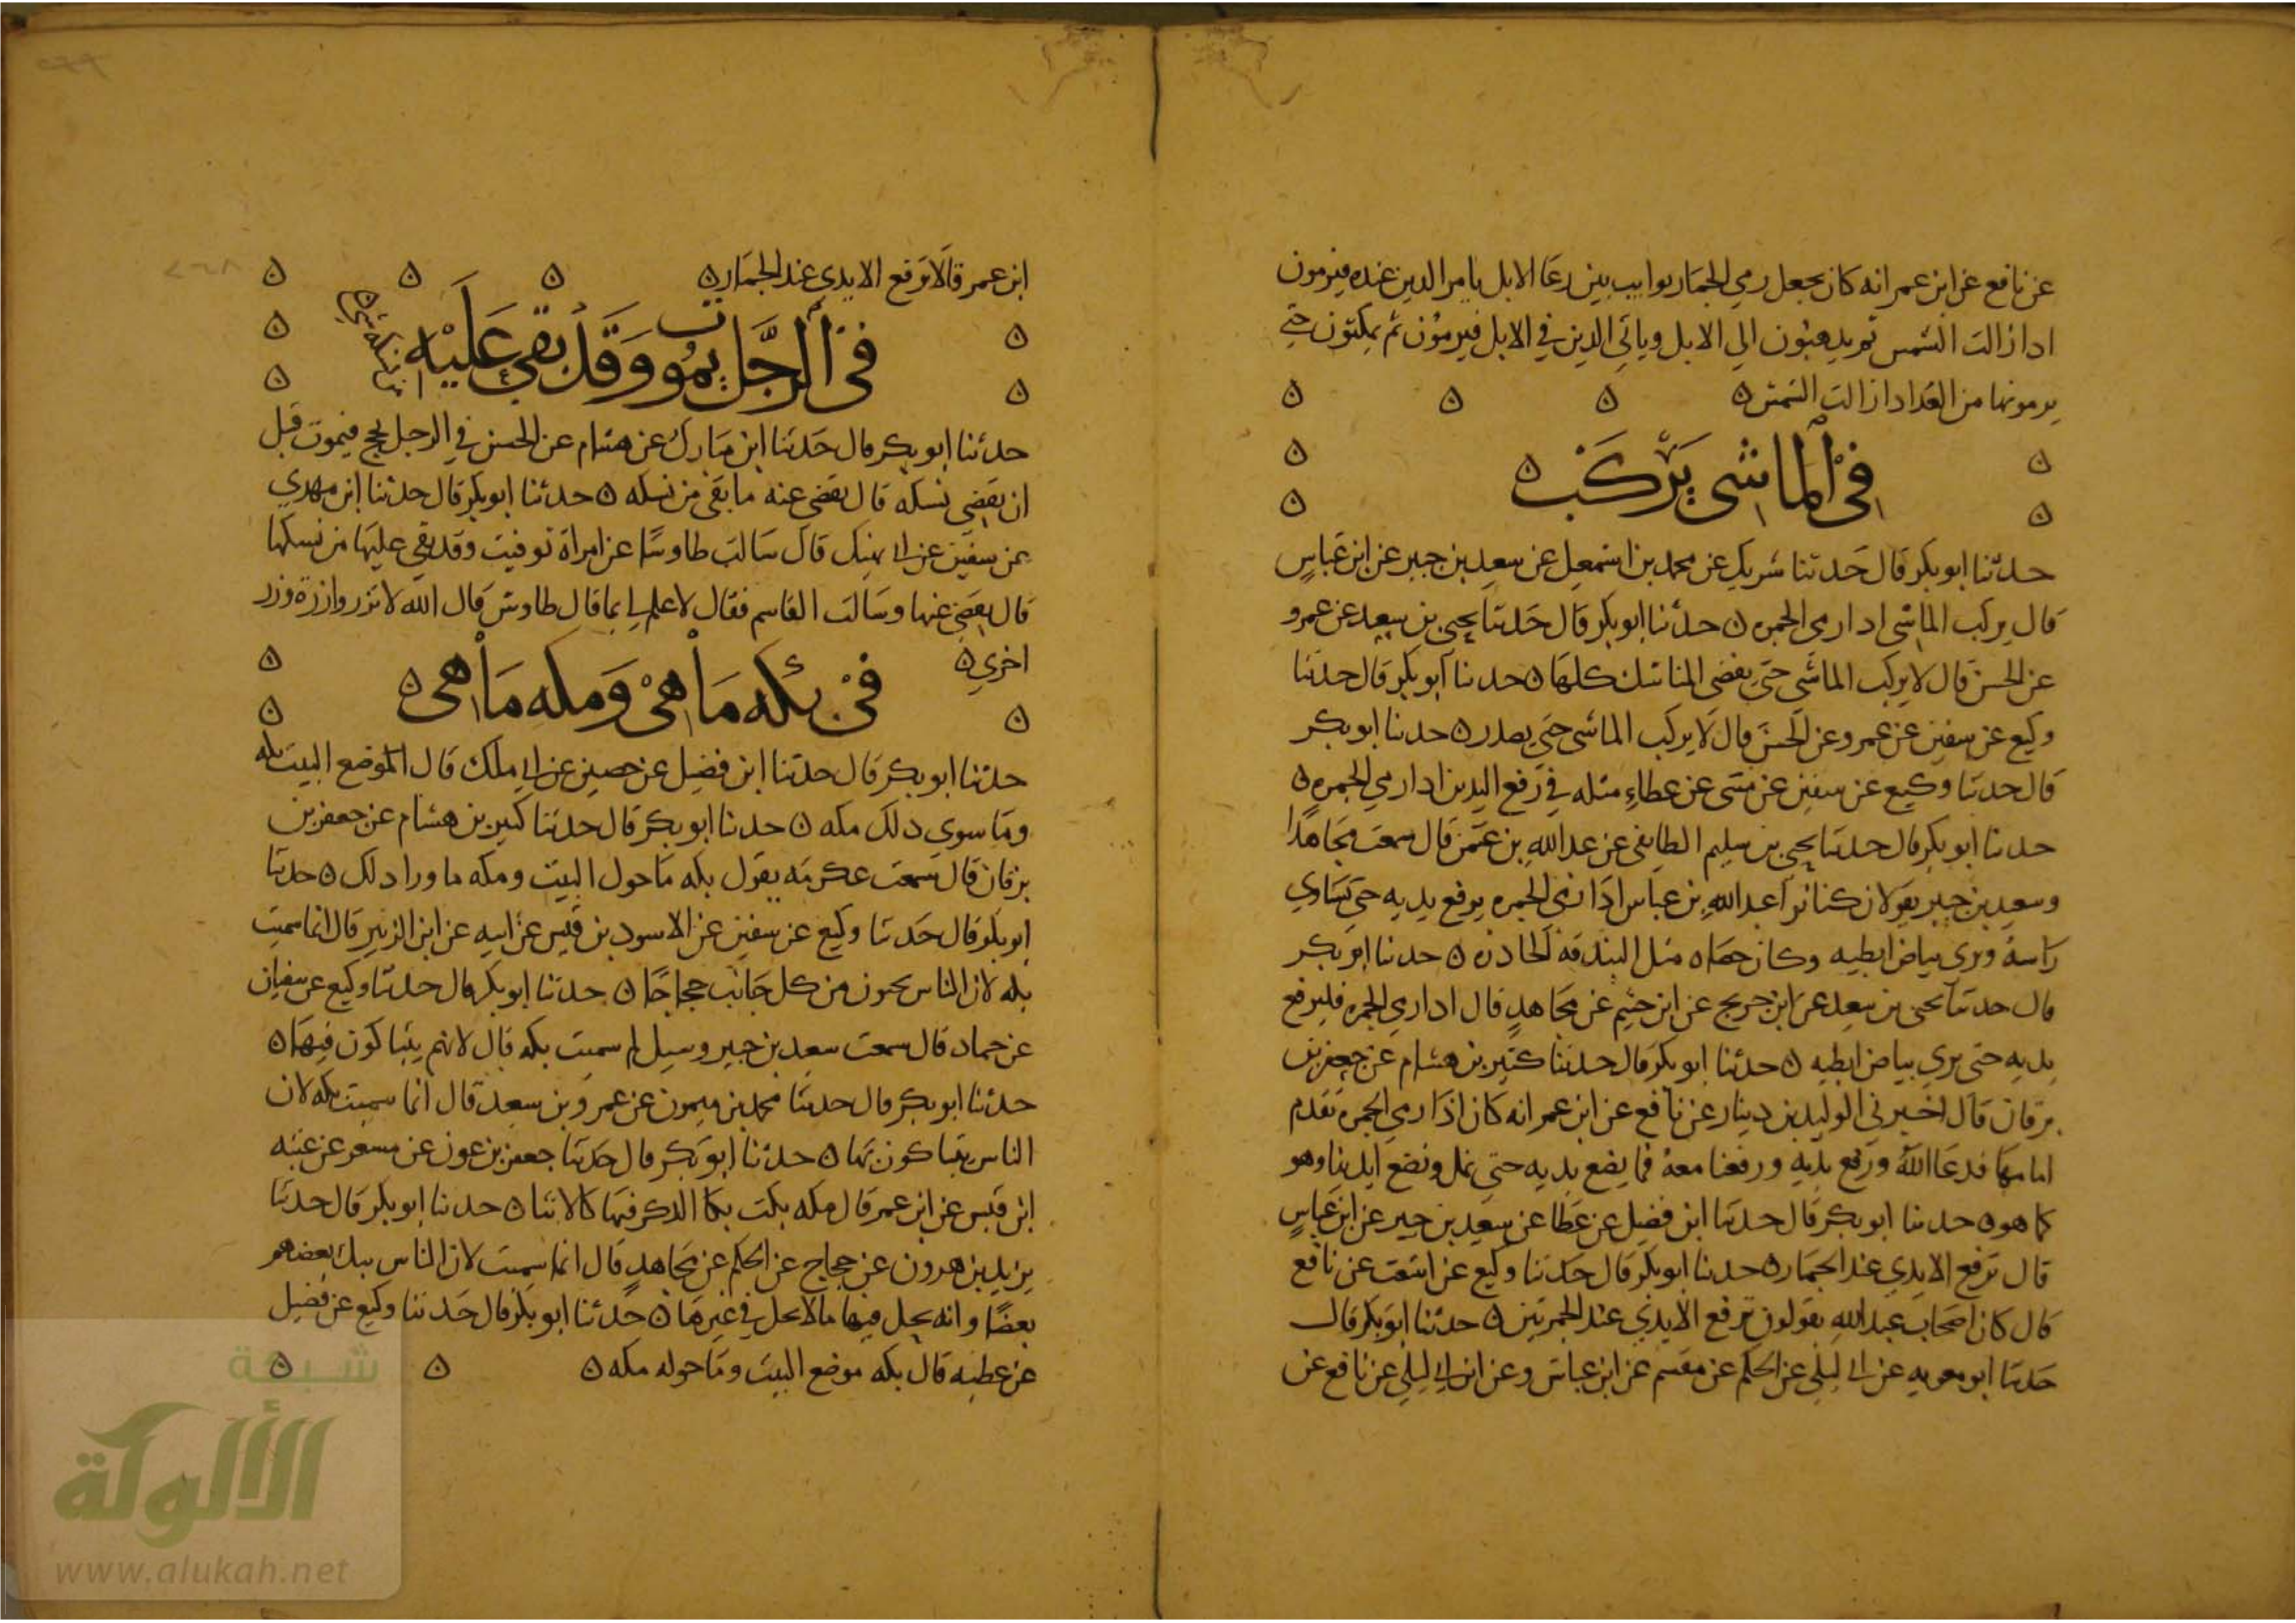 عن نافع عن ابن عمر انه كان يجعل رمي الجمار نوايب بين رعا الابل يامر الذين عنده فيرمون
اذا زالت الشمس ثم يذهبون الى الابل وياتي الذين في الابل فيرمون ثم يمكثون حتى
يرمونها من الغد اذا زالت الشمس ه
في الماشي يركب ه
حدثنا ابو بكر قال حدثنا شريك عن محمد بن اسمعيل عن سعيد بن جبير عن ابن عباس
قال يركب الماشي اذا رمى الجمره ه حدثنا ابو بكر قال حدثنا يحيى بن سعيد عن عمرو
عن الحسن قال لا يركب الماشي حتى يقضي المناسك كلها ه حدثنا ابو بكر قال حدثنا
وكيع عن سفين عن عمرو عن الحسن قال لا يركب الماشي حتى يصدر ه حدثنا ابو بكر
قال حدثنا وكيع عن سفين عن مثنى عن عطاء مثله في رفع اليدين اذا رمي الجمره ه
حدثنا ابو بكر قال حدثنا يحيى بن سليم الطايفي عن عبد الله بن عثمن قال سمعت مجاهدا
وسعيد بن جبير يقولان كنا نرا عبد الله بن عباس اذا رمى الجمره يرفع يديه حتى تساوي
راسه ويرى بياض ابطيه وكان حصاه مثل البندقه الحادره ه حدثنا ابو بكر
قال حدثنا يحيى بن سعيد عن ابن جريج عن ابن خثيم عن مجاهد قال اذا رمي الجمره فليرفع
يديه حتى يرى بياض ابطيه ه حدثنا ابو بكر قال حدثنا كثير بن هشام عن جعفر بن
برقان قال اخبرني الوليد بن دينار عن نافع عن ابن عمر انه كان اذا رمي الجمره تقدم
امامها فدعا الله ورفع يديه ورفعنا معه فما يضع يديه حتى نمل ونضع ايدينا وهو
كما هو ه حدثنا ابو بكر قال حدثنا ابن فضيل عن عطا عن سعيد بن جبير عن ابن عباس
قال ترفع الايدي عند الجمار ه حدثنا ابو بكر قال حدثنا وكيع عن اشعث عن نافع
قال كان اصحاب عبد الله يقولون ترفع الايدي عند الجمرتين ه حدثنا ابو بكر قال
حدثنا ابو معويه عن ابي ليلى عن الحكم عن مقسم عن ابن عباس وعن ابن ابي ليلى عن نافع عن
ابن عمر قالا ترفع الايدي عند الجمار ه
في الرجل يموت وقد بقي عليه
من نسكه شي ه
حدثنا ابو بكر قال حدثنا ابن مبارك عن هشام عن الحسن في الرجل يحج فيموت قبل
ان يقضي نسكه قال يقضى عنه ما بقي من نسكه ه حدثنا ابو بكر قال حدثنا ابن مهدي
عن سفين عن ابي نهيك قال سالت طاوسا عن امراة توفيت وقد بقي عليها من نسكها
قال يقضى عنها وسالت القاسم فقال لا علم لي بما قال طاوس قال الله لا تزر وازرة وزر
اخرى ه
في بكه ما هي ومكه ما هي ه
حدثنا ابو بكر قال حدثنا ابن فضيل عن حصين عن ابي ملك قال الموضع البيت بكه
وما سوى ذلك مكه ه حدثنا ابو بكر قال حدثنا كثير بن هشام عن جعفر بن
برقان قال سمعت عكرمه يقول بكه ما حول البيت ومكه ما ورا ذلك ه حدثنا
ابو بكر قال حدثنا وكيع عن سفين عن الاسود بن قيس عن ابيه عن ابن الزبير قال انما سميت
بكه لان الناس يجون من كل جانب حجاجا ه حدثنا ابو بكر قال حدثنا وكيع عن سفيان
عن حماد قال سمعت سعيد بن جبير وسيل لم سميت بكه قال لانهم يتباكون فيها ه
حدثنا ابو بكر قال حدثنا محمد بن ميمون عن عمرو بن سعيد قال انما سميت بكه لان
الناس يتباكون بها ه حدثنا ابو بكر قال حدثنا جعفر بن عون عن مسعر عن عتبه
ابن قيس عن ابن عمر قال مكه بكت بكا الذكر فيها كالانثا ه حدثنا ابو بكر قال حدثنا
يزيد بن هرون عن حجاج عن الحكم عن مجاهد قال انما سميت لان الناس يبك بعضهم
بعضا وانه يحل فيها ما لا يحل في غيرها ه حدثنا ابو بكر قال حدثنا وكيع عن فضيل
عن عطيه قال بكه موضع البيت وما حوله مكه ه
شبكة
الألوكة
www.alukah.net